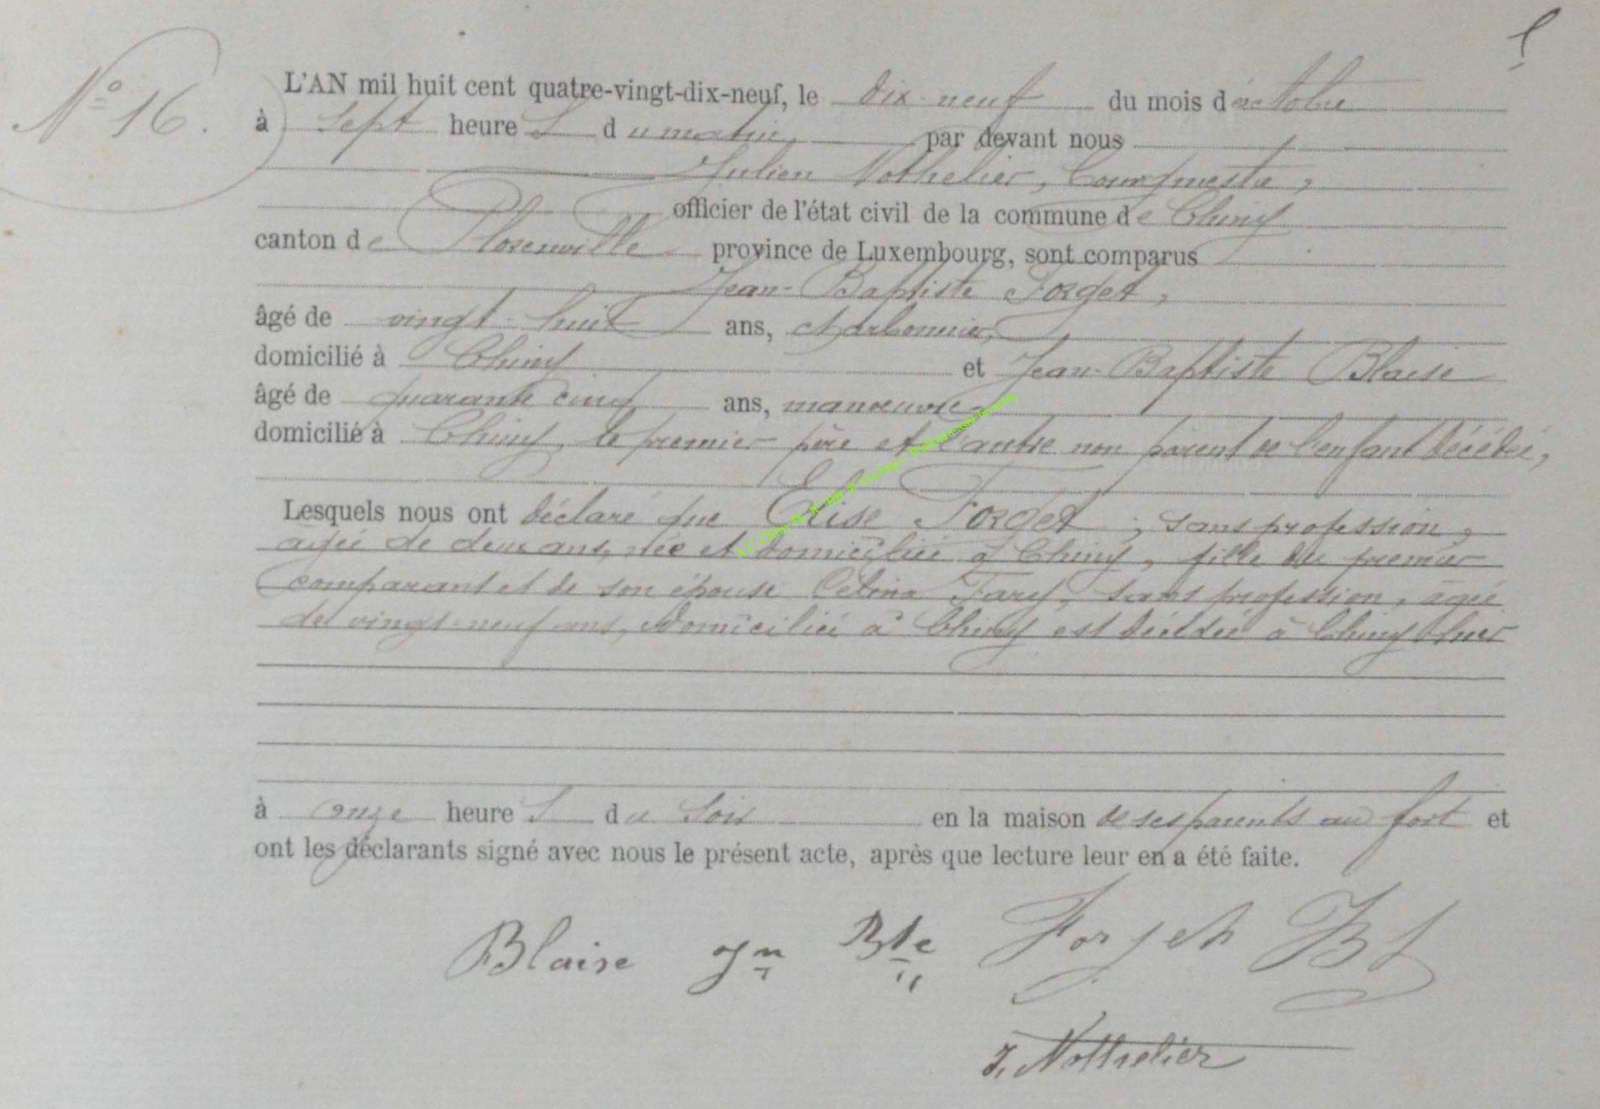 N° 16.
L'AN mil huit cent quatre-vingt-dix-neuf, le dix-neuf du mois d'octobre
à sept heures du matin par devant nous
Julien Nothelier, Bourgmestre,
officier de l'état civil de la commune de Chiny
canton de Florenville province de Luxembourg, sont comparus
Jean-Baptiste Forget,
âgé de vingt-huit ans, charbonnier,
domicilié à Chiny et Jean-Baptiste Blaise
âgé de quarante cinq ans, manœuvre
domicilié à Chiny, le premier père et l'autre non parent de l'enfant décédée,
Lesquels nous ont déclaré que Elise Forget, sans profession,
agée de deux ans, née et domiciliée à Chiny, fille du premier
comparant et de son épouse Célina Fary, sans profession, agée
de vingt-neuf ans, domiciliée à Chiny est décédée à Chiny hier
à onze heures du soir en la maison de ses parents au fort et
ont les déclarants signé avec nous le présent acte, après que lecture leur en a été faite.
Blaise Jn Bte Forget JB
J. Nothelier